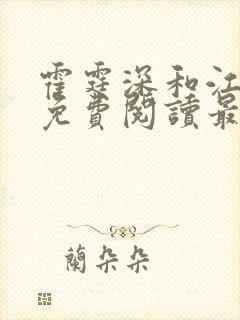 霍霆深和江
免費閱讀最
蘭朵朵